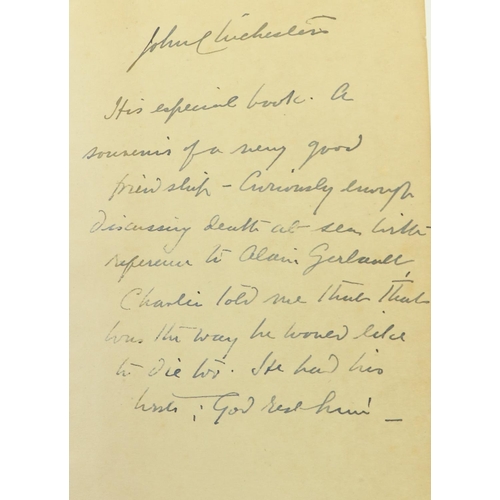 John Chichester
His especial book. A
souvenir of a very good
friendship – Curiously enough
discussing death at sea with
reference to Alain Gerbault,
Charlie told me that that
was the way he would like
to die too. He had his
wish; God rest him –